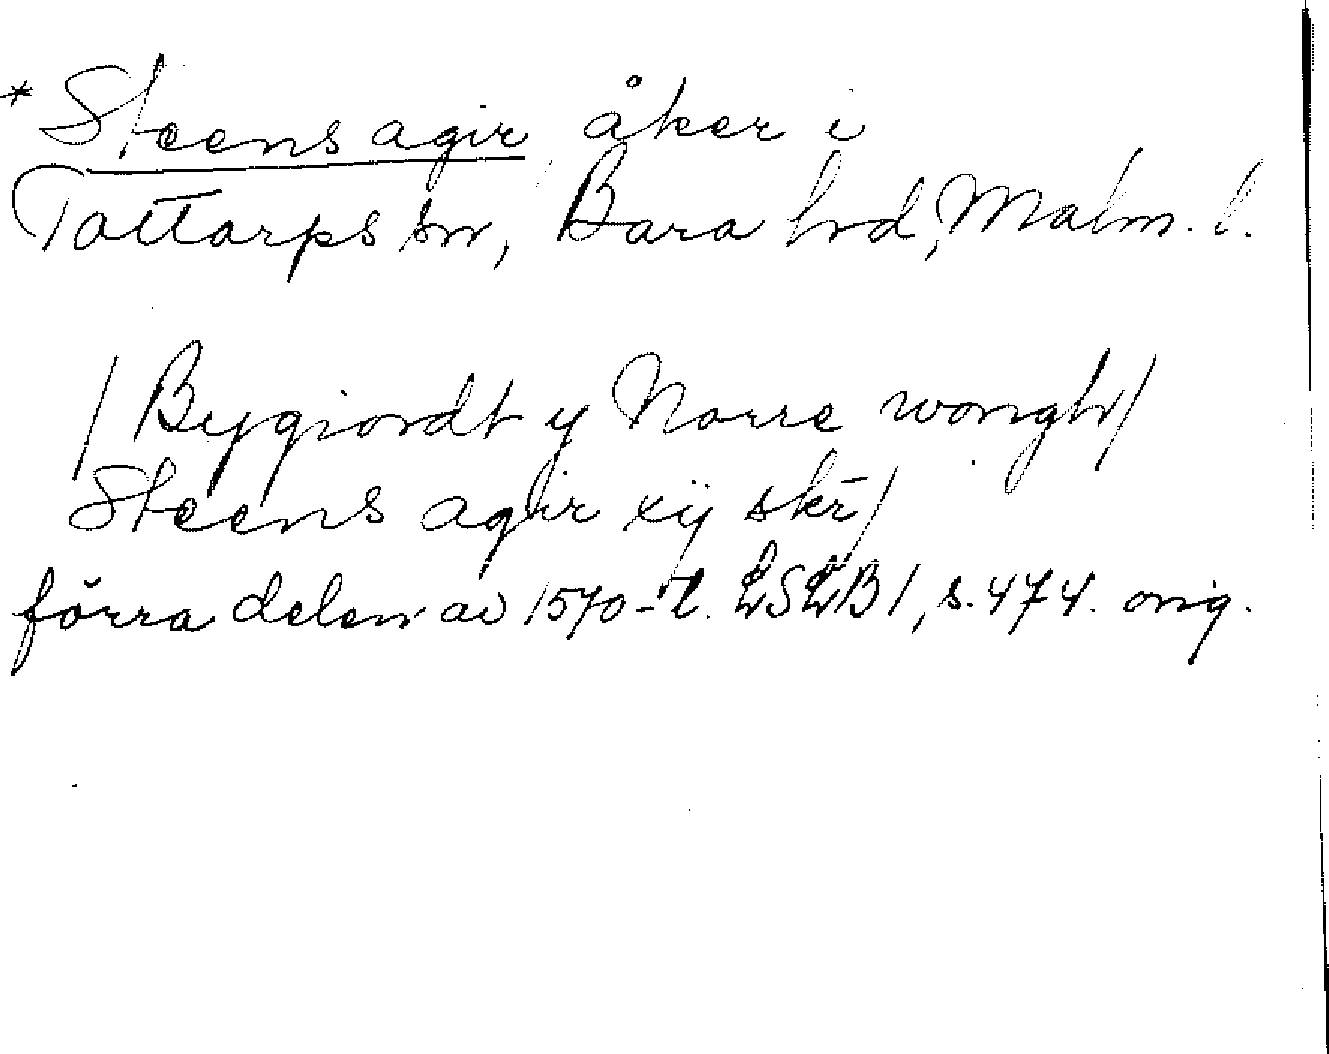 * Steens agir åker i
Tottarps sn, Bara hd, Malm. l.
/Bygiordt y Norre wongh/
Steens agir xij skr̄/
förra delen av 1570-t. LSLB1, s. 474. orig.